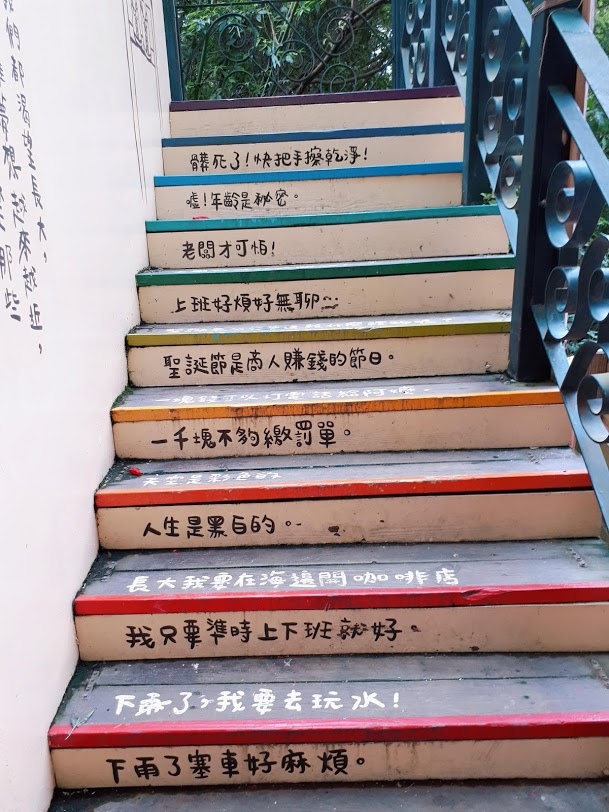 們都渴望長大，
夢想越來越近，
那些
髒死了！快把手擦乾淨！
噓！年齡是祕密。
老闆才可怕！
上班好煩好無聊…
聖誕節是商人賺錢的節日。
一塊錢可以打電話給阿嬤。
一千塊不夠繳罰單。
天空是彩色的
人生是黑白的。
長大我要在海邊開咖啡店
我只要準時上下班就好。
下雨了，我要去玩水！
下雨了塞車好麻煩。